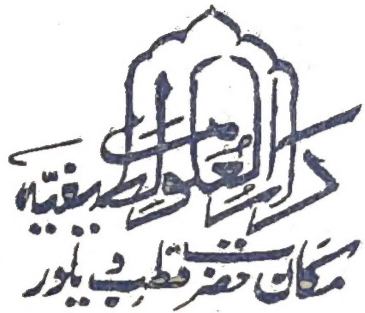 دارالعلوم لطیفیہ
مکان حضرت قطب ویلور